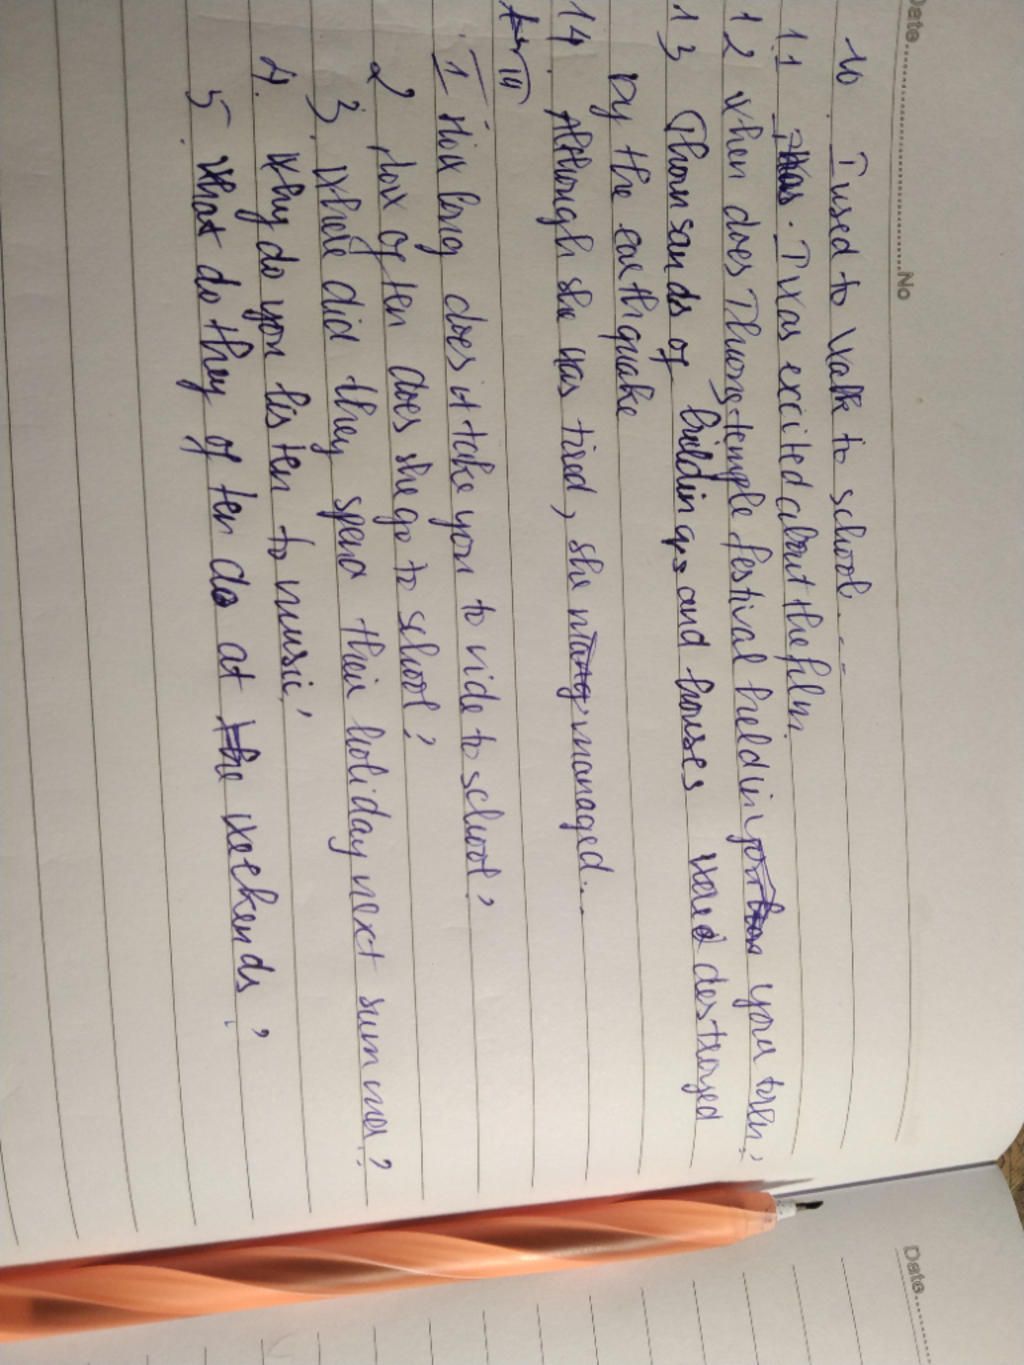 Date............................No
10. I used to walk to school....
11 I was. I was excited about the film.
12 when does Thuong temple festival held in your town?
13 Thounsands of buildings and houses were destroyed
by the earthquake
14. Although she was tired, she managed...
III
1 How long does it take you to ride to school?
2 How often does she go to school?
3. Where did they spend their holiday next summer?
4. Why do you listen to music?
5. What do they often do at the weekends?
Date.........